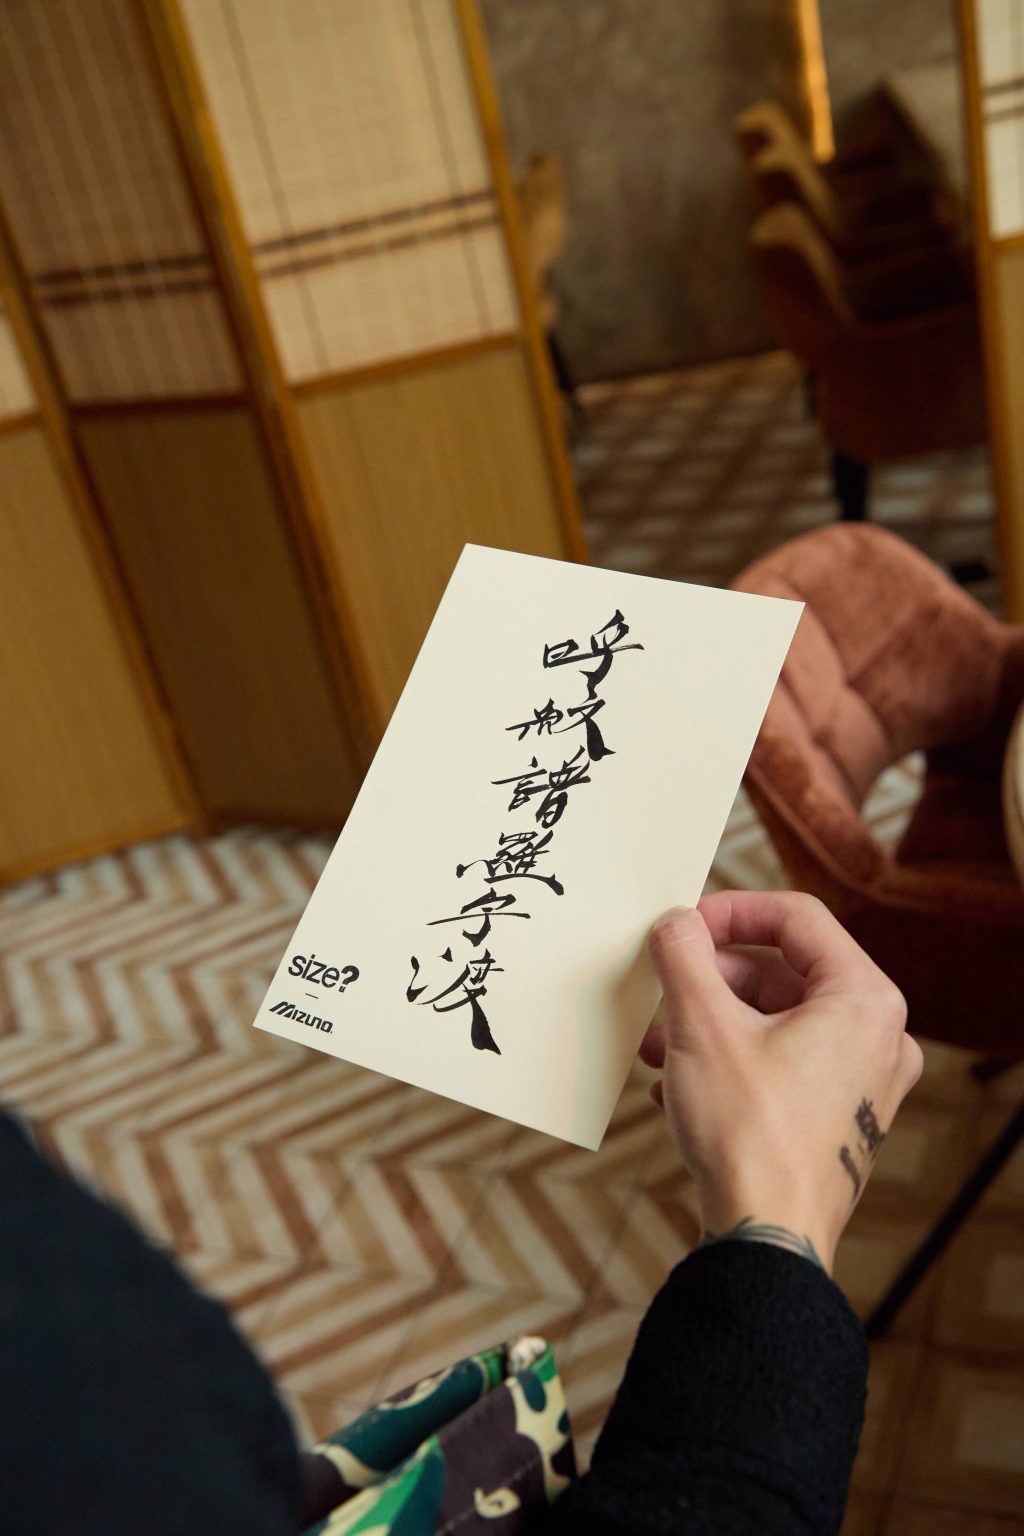 呼敏譜羅字渡
size?
Mizuno